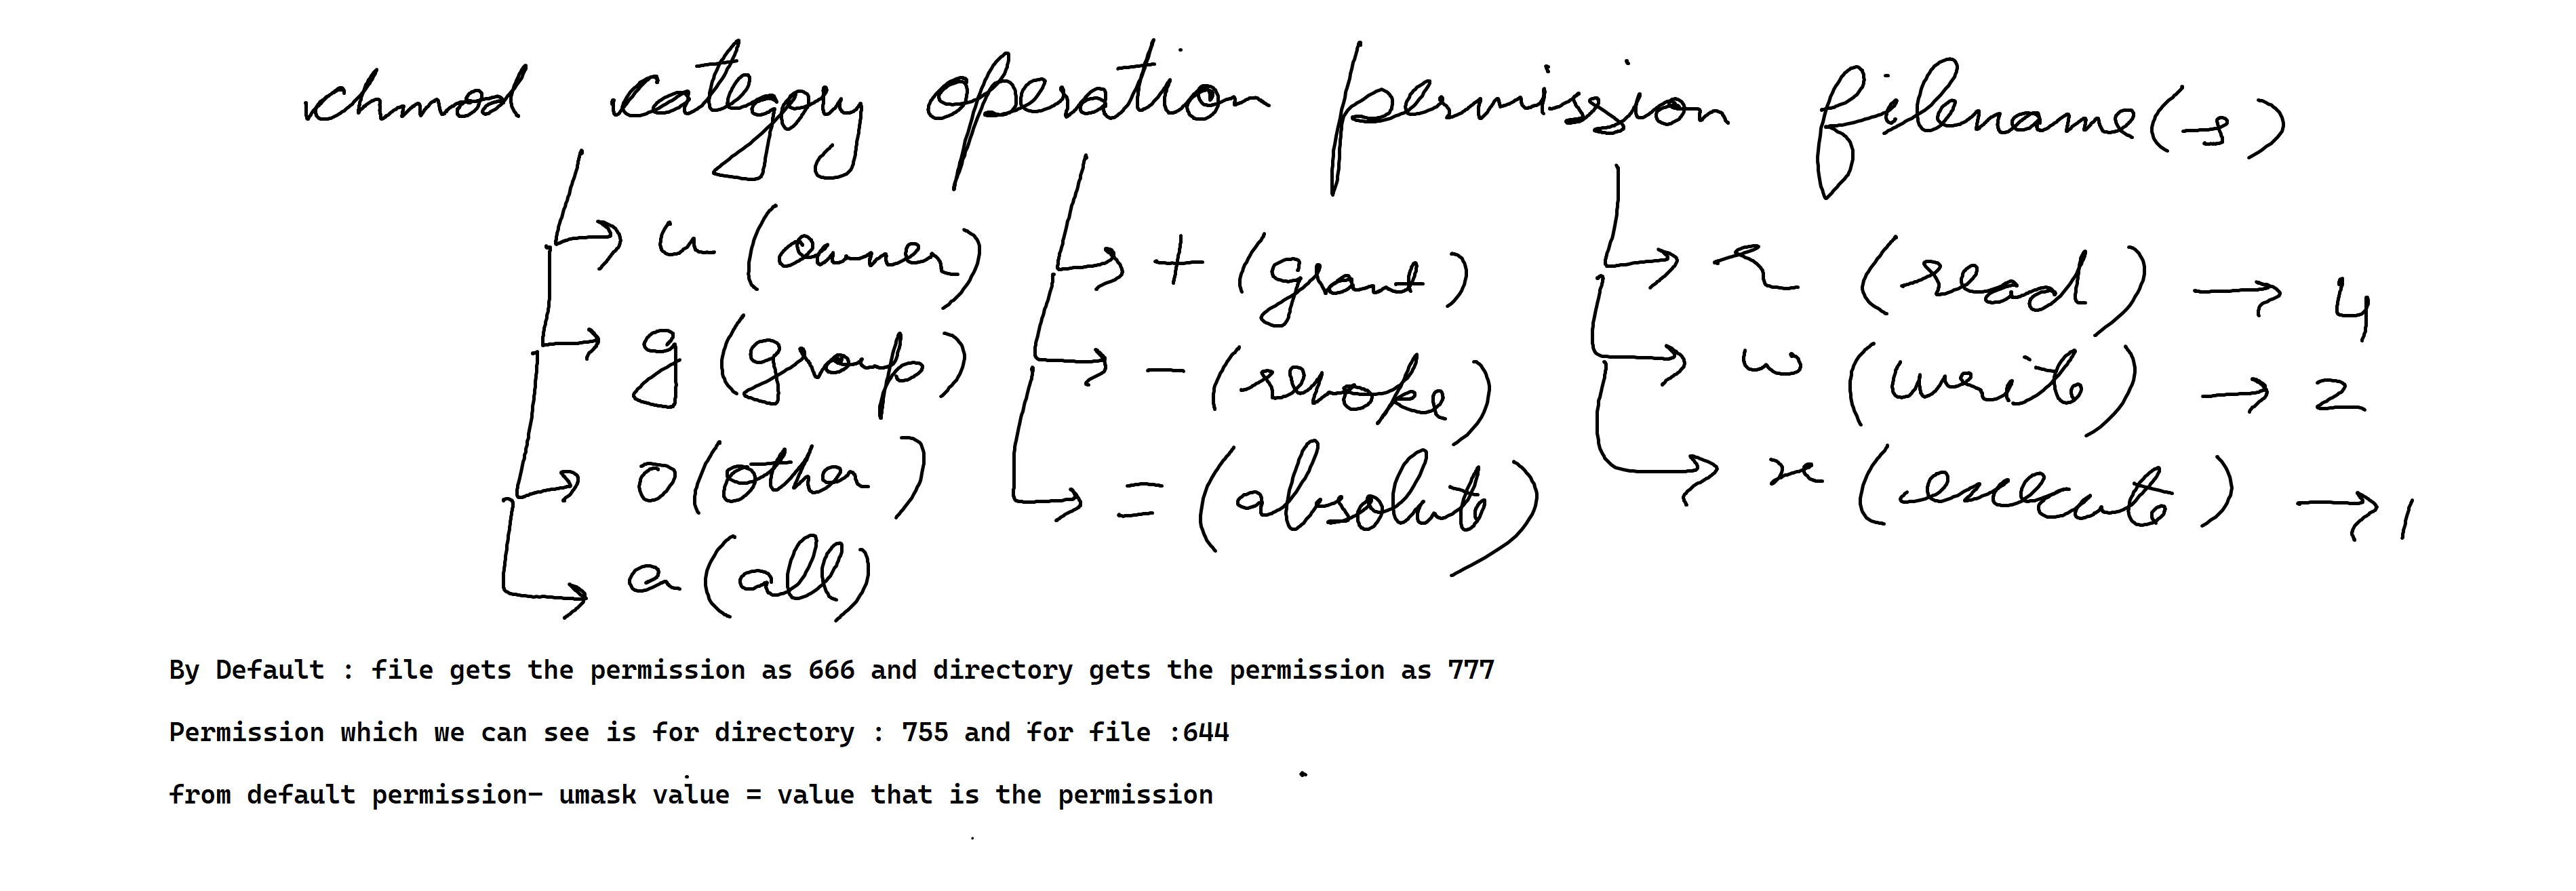 chmod category operation permission filename(-s)
u (owner) + (grant) r (read) → 4
g (group) - (revoke) w (write) → 2
o (other) = (absolute) x (execute) → 1
a (all)
By Default : file gets the permission as 666 and directory gets the permission as 777
Permission which we can see is for directory : 755 and for file :644
from default permission- umask value = value that is the permission